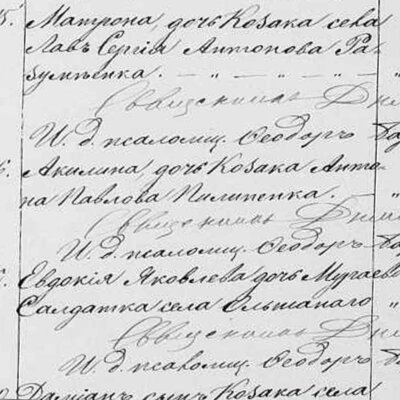 5. Матрона, дочь Козака села
Лавъ Сергія Антонова Ра-
зуменка. — „ — „ — „ —
Священникъ
И. д. псаломщ. Ѳеодоръ
6. Акилина, дочь Козака Анто-
на Павлова Пилипенка. — „
Священникъ
И. д. псаломщ. Ѳеодоръ
Евдокія Яковлева дочь
Солдатка села Ольшанаго „
Священникъ
И. д. псаломщ. Ѳеодоръ
Даміанъ сынъ Козака села